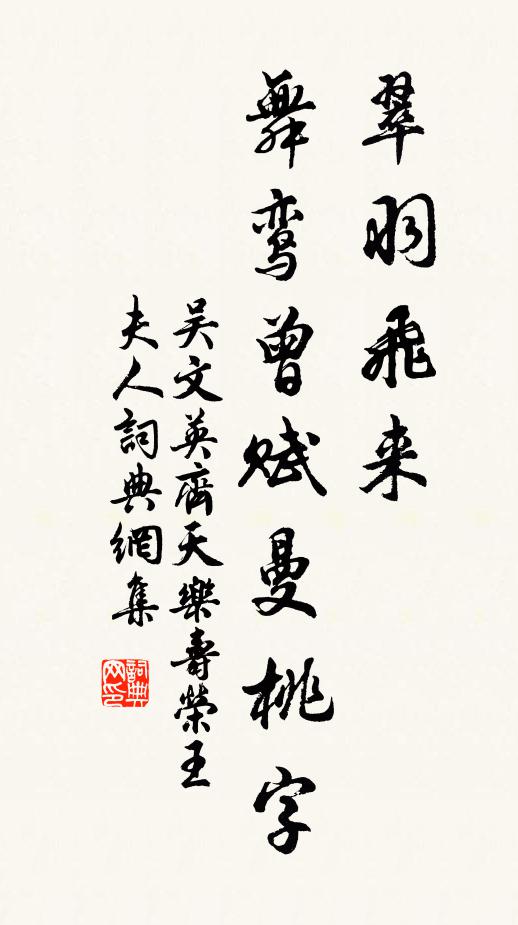 翠羽飛来
舞鸾曾赋曼桃字
吴文英齊天樂壽榮王
夫人詞典網集
詞典网印